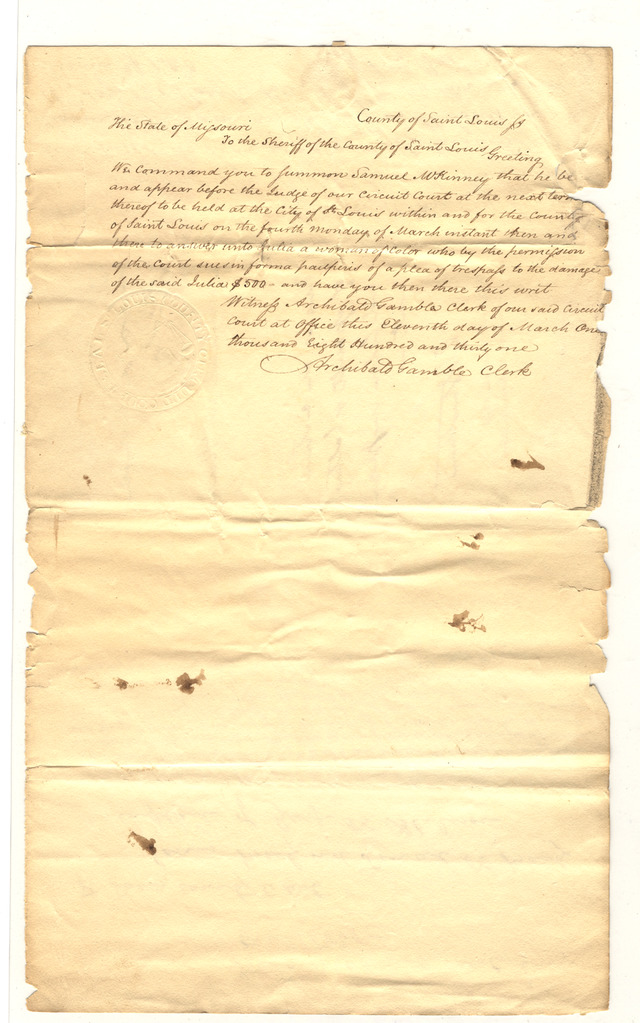 The State of Missouri County of Saint Louis
To the Sheriff of the County of Saint Louis Greeting
We Command you to Summon Samuel McKinney that he be
and appear before the Judge of our Circuit Court at the next term
thereof to be held at the City of St Louis within and for the County
of Saint Louis on the fourth Monday of March instant then and
there to answer unto Julia a woman of Color who by the permission
of the Court sues in forma pauperis of a plea of trespass to the damage
of the said Julia $500- and have you then there this writ
Witness Archibald Gamble Clerk of our said Circuit
Court at Office this Eleventh day of March One
thousand Eight Hundred and thirty one
Archibald Gamble Clerk